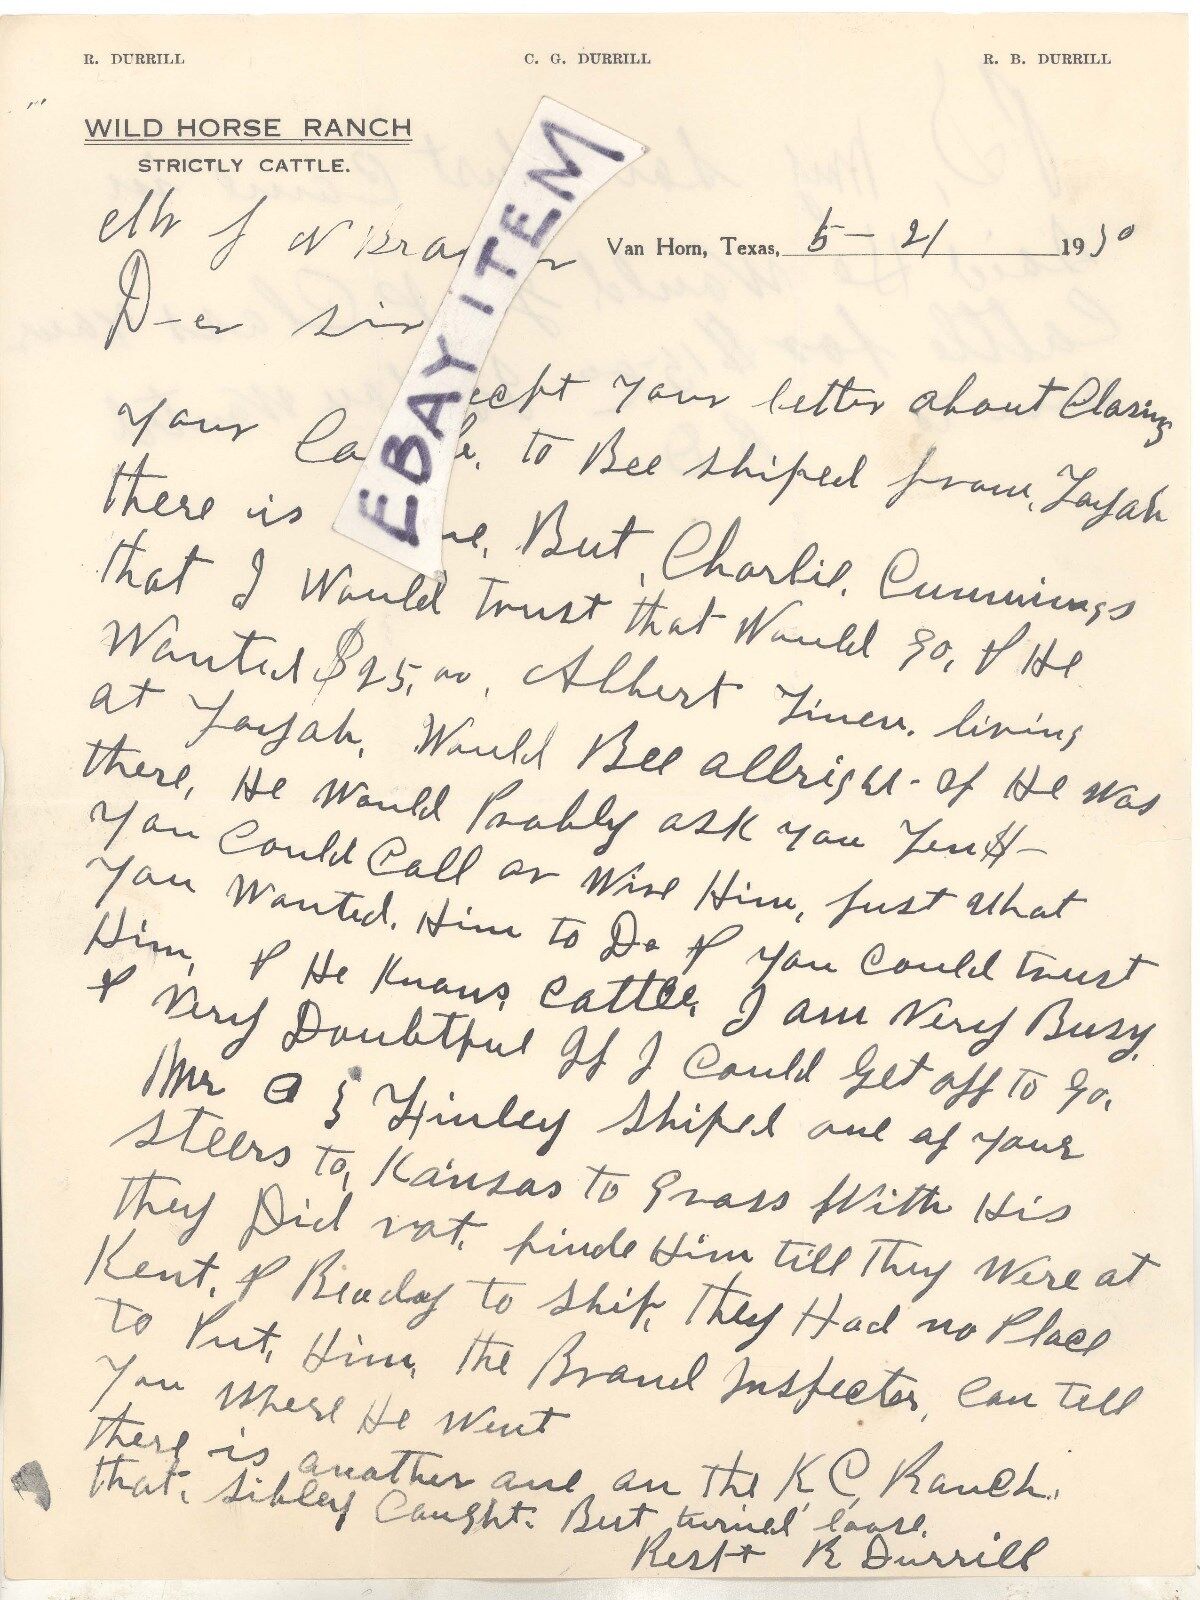 R. DURRILL C. G. DURRILL R. B. DURRILL
WILD HORSE RANCH
STRICTLY CATTLE.
EBAY ITEM
Mr J W
Van Horn, Texas, 5-21 1930
D-er sir
your letter about Clasing
your to Bee shiped from, Toyah
there is But, Charlie. Cummings
that I Would trust that Would go, & He
Wanted $25,00, Albert living
at Toyah, Would Bee allright - if He was
there, He Would Probly ask you Ten $-
you Could Call or Wire Him, Just What
you Wanted. Him to Do & you Could trust
Him, & He Knows, Cattle, I am Very Busy,
& Very Doubtful If I Could Get off to Go,
Mr Finley Shiped one of your
Steers to, Kansas to Grass With His
they Did not, finde Him till They Were at
Kent, & Ready to Ship, They Had no Place
to Put, Him, the Brand Inspector, Can tell
you Where He Went
there is another one on the K C, Ranch.
that. Sibley Caught. But turned loose.
Rest+ R Durrill